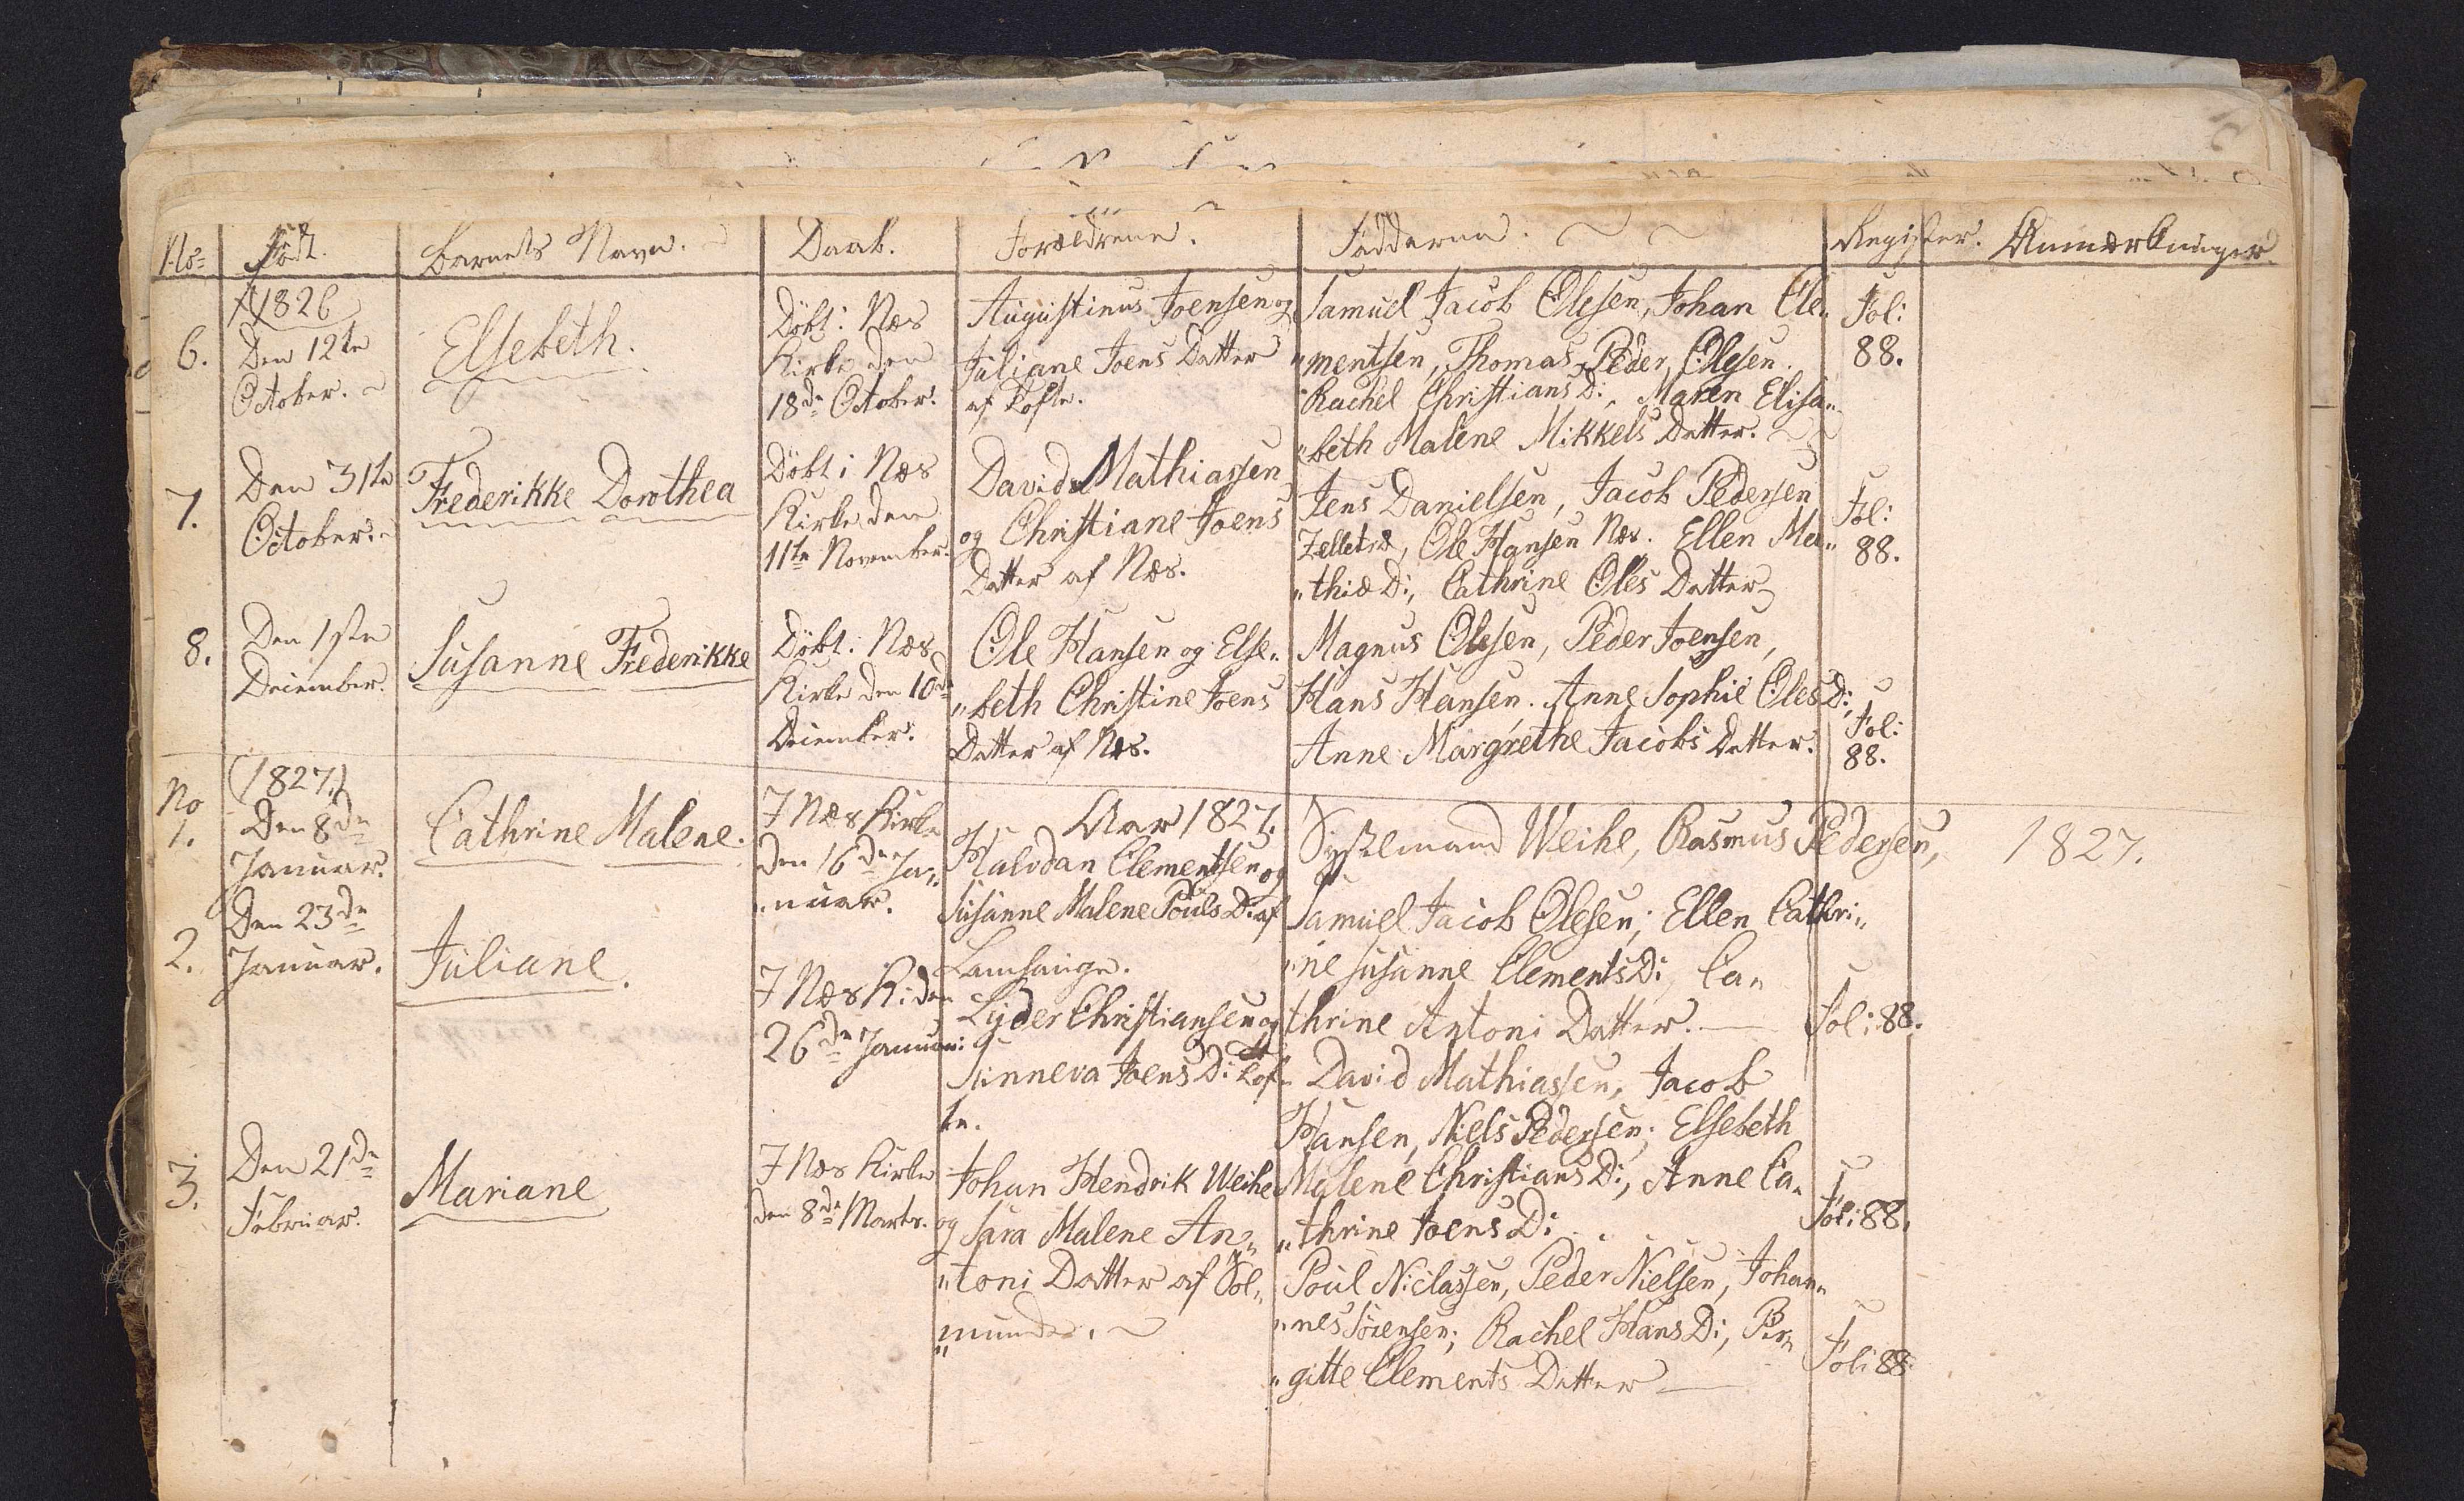 No= Födt. Barnets Navn. Daab. Forældrene. Fadderne. Register. Anmærkninger
6.
1826
Den 12te
October.
Elsebeth.
Döbt i Næs
Kirke den
18de October.
Augustinus Joensen og
Juliane Joens Datter
af Tofte.
Samuel Jacob Olesen, Johan Cle„
„mentsen, Thomas Peder Olesen.
Rachel Christians D:, Maren Elisa„
„beth Malene Mikkels Datter.
Fol:
88.
7.
Den 31te
October.
Frederikke Dorothea
Döbt i Næs
Kirke den
11te November.
David Mathiassen
og Christiane Joens
Datter af Næs.
Jens Danielsen, Jacob Pedersen
Zelletræ, Ole Hansen Næs. Ellen Ma„
„thiæ D:, Cathrine Oles Datter
Fol:
88.
8.
Den 1ste
December.
Susanne Frederikke
Döbt i Næs
Kirke den 10de
December.
Ole Hansen og Else„
„beth Christine Joens
Datter af Næs.
Magnus Olesen, Peder Joensen,
Hans Hansen. Anne Sophie Oles D:,
Anne Margrethe Jacobs Datter.
Fol:
88.
No
1.
(1827.)
Den 8de
Januar.
Cathrine Malene.
I Næs Kirke
den 16de Ja„
„nuar.
Aar 1827.
Halvdan Clementsen og
Susanne Malene Pouls D: af
Lamhauge.
Sysselmand Weihe, Rasmus Pedersen,
Samuel Jacob Olesen; Ellen Cathri„
„ne Susanne Clements D:, Ca„
thrine Antoni Datter.
Fol: 88.
1827.
2.
Den 23de
Januar.
Juliane.
I Næs K: den
26de Januar:
Lyder Christiansen og
Sinneva Joens D: Tof„
te.
David Mathiassen, Jacob
Hansen, Niels Pedersen; Elsebeth
Malene Christians D:, Anne Ca„
„thrine Joens D:
Fol: 88.
3.
Den 21de
Februar.
Mariane
I Næs Kirke
den 8de Marts.
Johan Hendrik Weihe
og Sara Malene An„
„toni Datter af Sol„
„munde.
Poul Niclassen, Peder Nielsen, Johan„
„nes Sörensen; Rachel Hans D:, Bir„
„gitte Clements Datter
Fol: 88